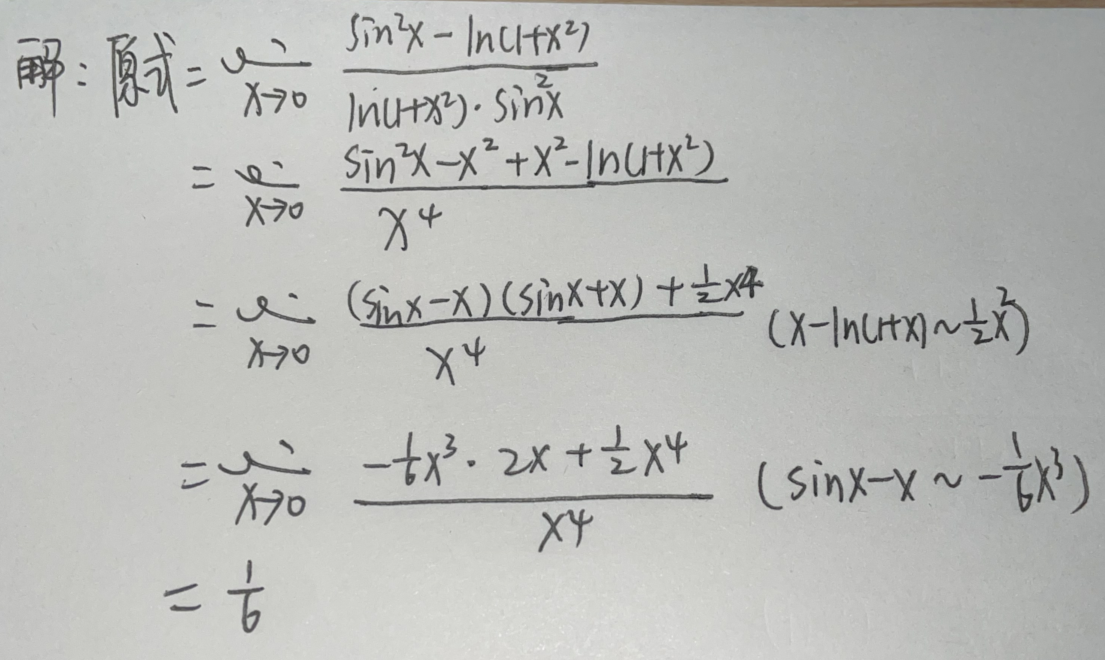 解：原式 = lim x→0 (sin²x - ln(1+x²)) / (ln(1+x²)·sin²x)
= lim x→0 (sin²x - x² + x² - ln(1+x²)) / x⁴
= lim x→0 ((sinx-x)(sinx+x) + ½x⁴) / x⁴ (x-ln(1+x) ~ ½x²)
= lim x→0 (-⅙x³·2x + ½x⁴) / x⁴ (sinx-x ~ -⅙x³)
= ⅙